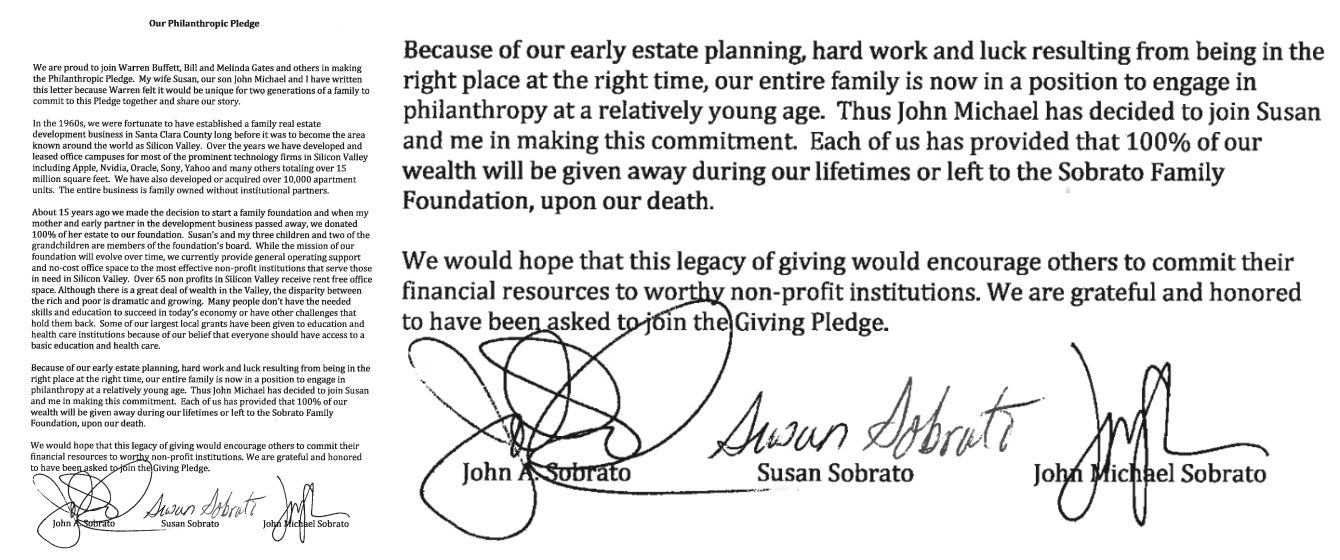 Our Philanthropic Pledge
We are proud to join Warren Buffett, Bill and Melinda Gates and others in making
the Philanthropic Pledge. My wife Susan, our son John Michael and I have written
this letter because Warren felt it would be unique for two generations of a family to
commit to this Pledge together and share our story.
In the 1960s, we were fortunate to have established a family real estate
development business in Santa Clara County long before it was to become the area
known around the world as Silicon Valley. Over the years we have developed and
leased office campuses for most of the prominent technology firms in Silicon Valley
including Apple, Nvidia, Oracle, Sony, Yahoo and many others totaling over 15
million square feet. We have also developed or acquired over 10,000 apartment
units. The entire business is family owned without institutional partners.
About 15 years ago we made the decision to start a family foundation and when my
mother and early partner in the development business passed away, we donated
100% of her estate to our foundation. Susan's and my three children and two of the
grandchildren are members of the foundation's board. While the mission of our
foundation will evolve over time, we currently provide general operating support
and no-cost office space to the most effective non-profit institutions that serve those
in need in Silicon Valley. Over 65 non profits in Silicon Valley receive rent free office
space. Although there is a great deal of wealth in the Valley, the disparity between
the rich and poor is dramatic and growing. Many people don't have the needed
skills and education to succeed in today's economy or have other challenges that
hold them back. Some of our largest local grants have been given to education and
health care institutions because of our belief that everyone should have access to a
basic education and health care.
Because of our early estate planning, hard work and luck resulting from being in the
right place at the right time, our entire family is now in a position to engage in
philanthropy at a relatively young age. Thus John Michael has decided to join Susan
and me in making this commitment. Each of us has provided that 100% of our
wealth will be given away during our lifetimes or left to the Sobrato Family
Foundation, upon our death.
We would hope that this legacy of giving would encourage others to commit their
financial resources to worthy non-profit institutions. We are grateful and honored
to have been asked to join the Giving Pledge.
Susan Sobrato
John A. Sobrato Susan Sobrato John Michael Sobrato
Because of our early estate planning, hard work and luck resulting from being in the
right place at the right time, our entire family is now in a position to engage in
philanthropy at a relatively young age. Thus John Michael has decided to join Susan
and me in making this commitment. Each of us has provided that 100% of our
wealth will be given away during our lifetimes or left to the Sobrato Family
Foundation, upon our death.
We would hope that this legacy of giving would encourage others to commit their
financial resources to worthy non-profit institutions. We are grateful and honored
to have been asked to join the Giving Pledge.
Susan Sobrato
John A. Sobrato Susan Sobrato John Michael Sobrato